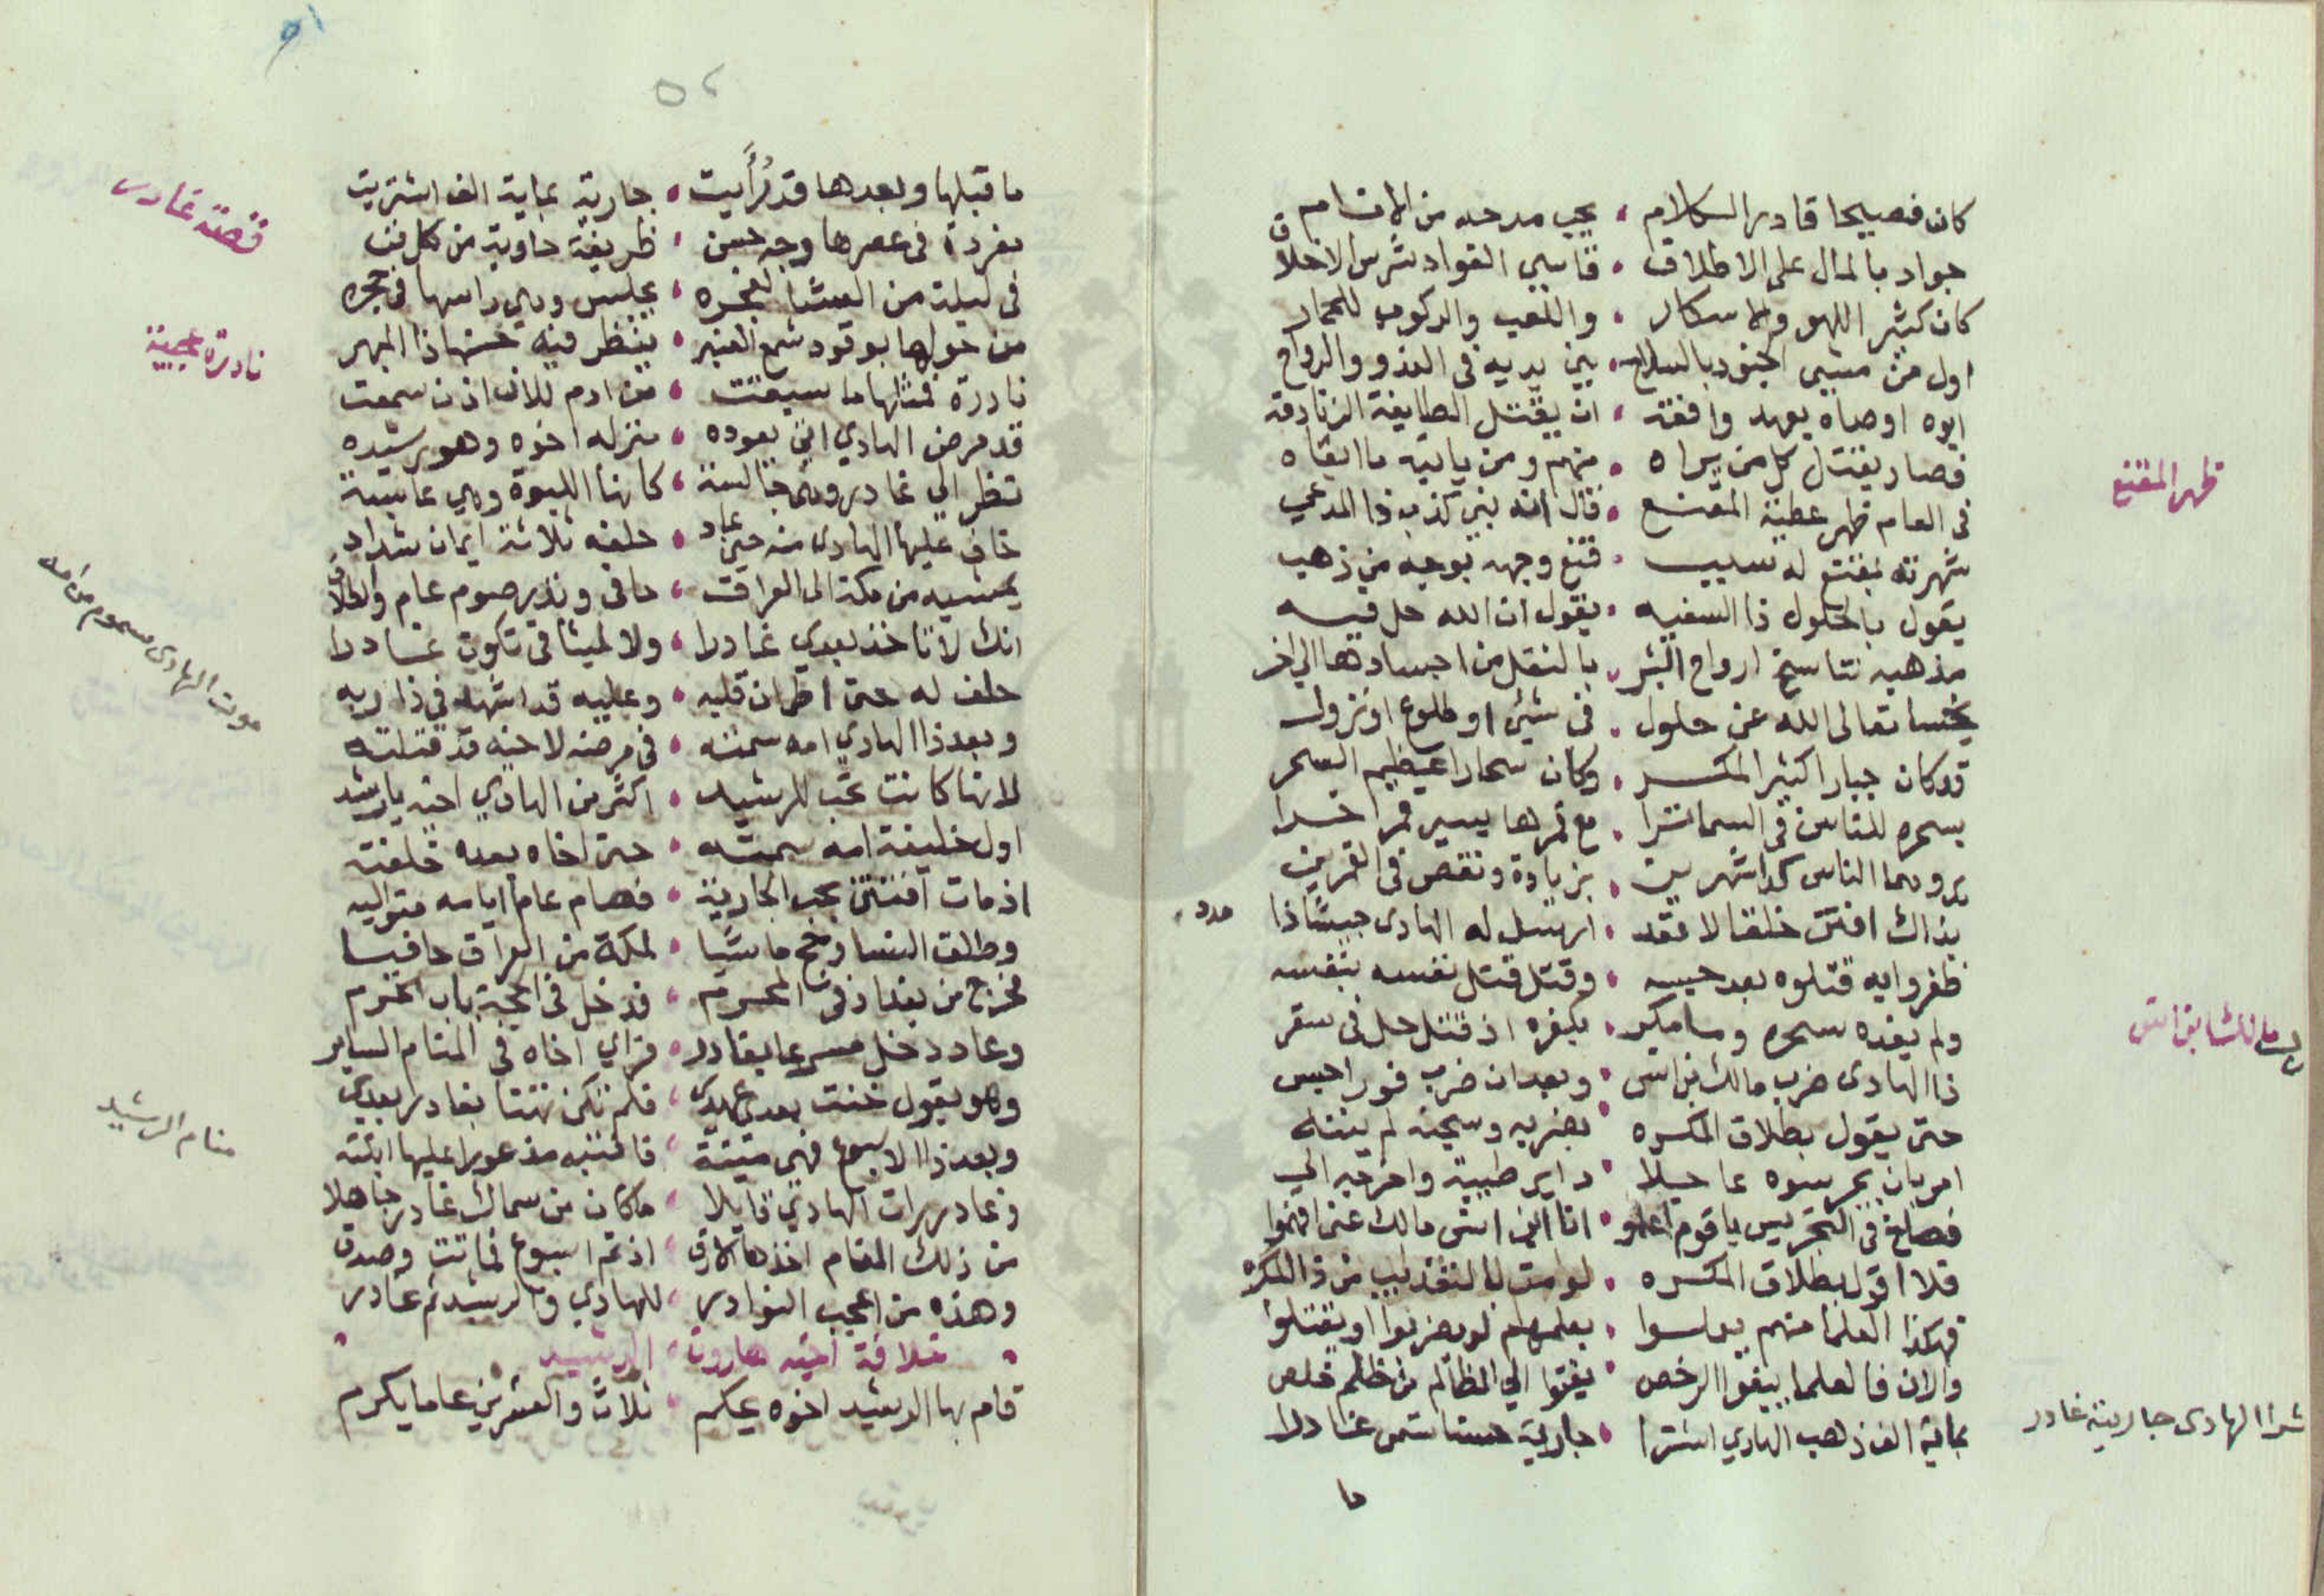 كان فصيحا قادر الكلام ، يجب مدحه من الانام
جواد بالمال على الاطلاق ، قاسي الفواد شرس الاخلاق
كان كثير اللهو والاسكار ، واللعب والركوب للحمار
اول من مشى الجنود بالسلاح ، بين يديه في الغدو والرواح
ابوه اوصاه بعهد وافقه ، ان يقتل الطايفة الزنادقه
فصار يقتل كل من يراه ، منهم ومن ياتيه ما ابقاه
ظهر المقنع
في العام ظهر عطية المقنع ، قال انه نبي كذب ذا المدعي
شهرته بمقنع له سبب ، قنع وجهه بوجه من ذهب
يقول بالحلول ذا السفيه ، يقول ان الله حل فيه
مذهبه تناسخ ارواح البشر ، بالنقل من اجسادها الى اخر
يخسا تعالى الله عن حلول ، في شيئ او طلوع او نزول
قد كان جبارا كثير المكر ، وكان سحارا عظيم السحر
بسحره للناس في السما ترا ، مع قمرها يسير قمرا اخرا
يروهما الناس كدا شهرين ، بزيادة ونقص في القمرين
بذاك افتن خلقا لا فقد ، ارسل له الهادي جيشا ذا
مدد
ظفروا به قتلوه بعد حبسه ، وقتل قتل نفسه بنفسه
ولم يفده سحره وما مكر ، بكفره اذ قتل حل في سقر
ذا الهادي ضرب مالك بن انس ، وبعد ان ضرب فورا حبس
حتى يقول بطلاق المكره ، بضربه وسجنه لم ينته
امر بان يجرسوه عاجلا ، داير طيبة واخرجه الى
فصاح في التجريس يا قوم اعلموا ، انا ابن انس مالك عني افهموا
فلا اقول بطلاق المكره ، لو مت بالتعذيب من ذا المكره
فهكذا العلما منهم ، بعلمهم لو يضربوا او يقتلوا
والان فالعلما يبيعوا الرخص ، يفتوا الى الظالم من ظلم خلص
شرا الهادي جارية غادر
بماية الف ذهب الهادي اشترا ، جارية حسنا تسمى غادرا
ما
٥١
٥٢
ما قبلها وبعدها قد رُأيت ، جارية بماية الف اشتريت
قصة غادر
مفردة في عصرها وجه حسن ، ظريفة حاوية من كل فن
في ليلة من العشا لفجره ، يجلس وهي راسها في حجره
نادرة عجيبة
من حولها بوقود شمع العنبر ، ينظر فيه حسنها ذا المبهر
نادرة فمثلها ما سبقت ، من ادم للان اذن سمعت
قد مرض الهادي اتى يعوده ، منزله اخوه وهو رشيده
نظر الى غادر وهي جالسة ، كانها اللبوة وهي عابسة
خاف عليها الهادي منه حين عاد ، حلفه ثلاثة ايمان شداد
يمشيه من مكة الى العراق ، حافي ونذر صوم عام والطلاق
انك لا تاخذ بعدي غادرا ، ولا لميثاقي تكون غادرا
موت الهادي مسموم من امه
حلف له حتى اطمان قلبه ، وعليه قد اشهد في ذا ربه
وبعد ذا الهادي امه سمته ، في مرضه لاجنه قد قتلته
لانها كانت تحب للرشيد ، اكثر من الهادي اخيه يا رشيد
اول خليفة امه سمته ، حتى اخاه بعده خلفته
اذ مات افتتن بحب الجارية ، فصام عاما ايامه متواليه
وطلق النسا وحج ماشيا ، لمكة من العراق حافيا
خرج من بغداد في المحرم ، فدخل في الحجة باب الحرم
وعاد دخل مسرعا بغادر ، فراي اخاه في المنام الساير
منام الرشيد
وهو يقول خنت بعدي عهدي ، فلم تكن تهنا بغادر بعدي
وبعد ذا الاسبوع فهي ميتة ، فانتبه مذعورا عليها
وغادر رات الهادي قايلا ، ما كان من سماك غادر جاهلا
من ذلك المنام اخذها الارق ، اذ تم اسبوع فماتت وصدق
وهذه من اعجب النوادر ، للهادي والرشيد ثم غادر
خلافة اخيه هارون الرشيد
قام بها الرشيد اخوه يحكم ، ثلاث والعشرين عاما يكرم